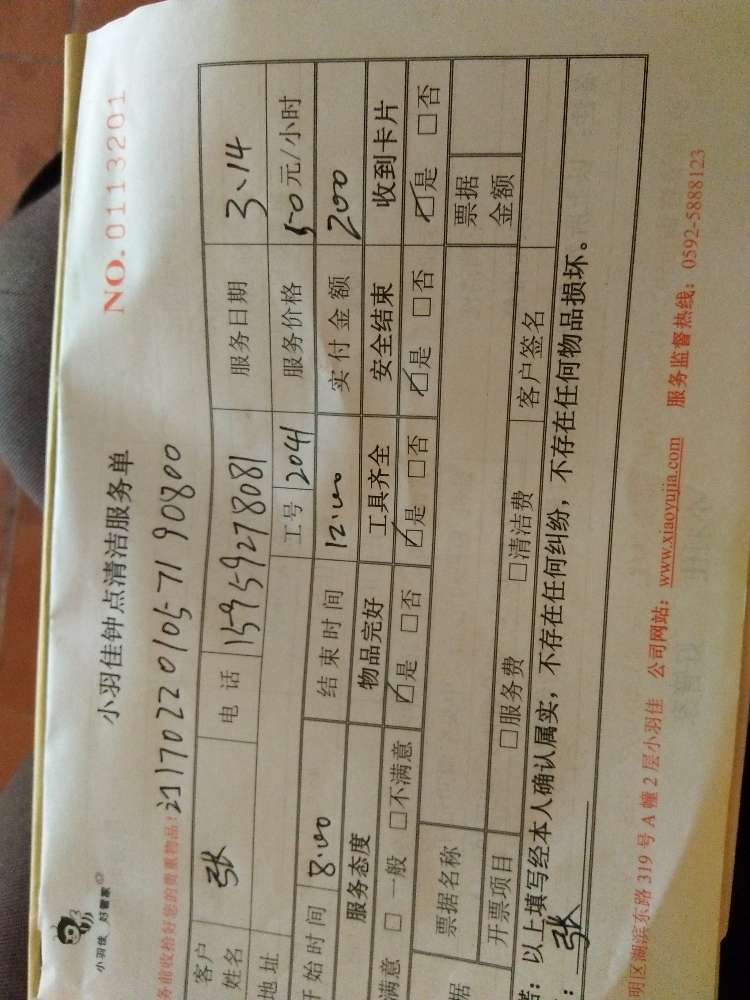 小羽佳 好管家
小羽佳钟点清洁服务单
NO.0113201
务前收拾好您的贵重物品!
2117022010571 90800
客户姓名 张 电话 15959278081 服务日期 3、14
地址 工号 2041 服务价格 50元/小时
开始时间 8:00 结束时间 12:00 实付金额 200
服务态度 物品完好 工具齐全 安全结束 收到卡片
满意 □一般 □不满意 ☑是 □否 ☑是 □否 ☑是 □否 ☑是 □否
据 票据名称 票据金额
开票项目 □服务费 □清洁费 客户签名
诺:以上填写经本人确认属实,不存在任何纠纷,不存在任何物品损坏。
:张
明区湖滨东路319号A幢2层小羽佳 公司网站:www.xiaoyujia.com 服务监督热线:0592-5888123